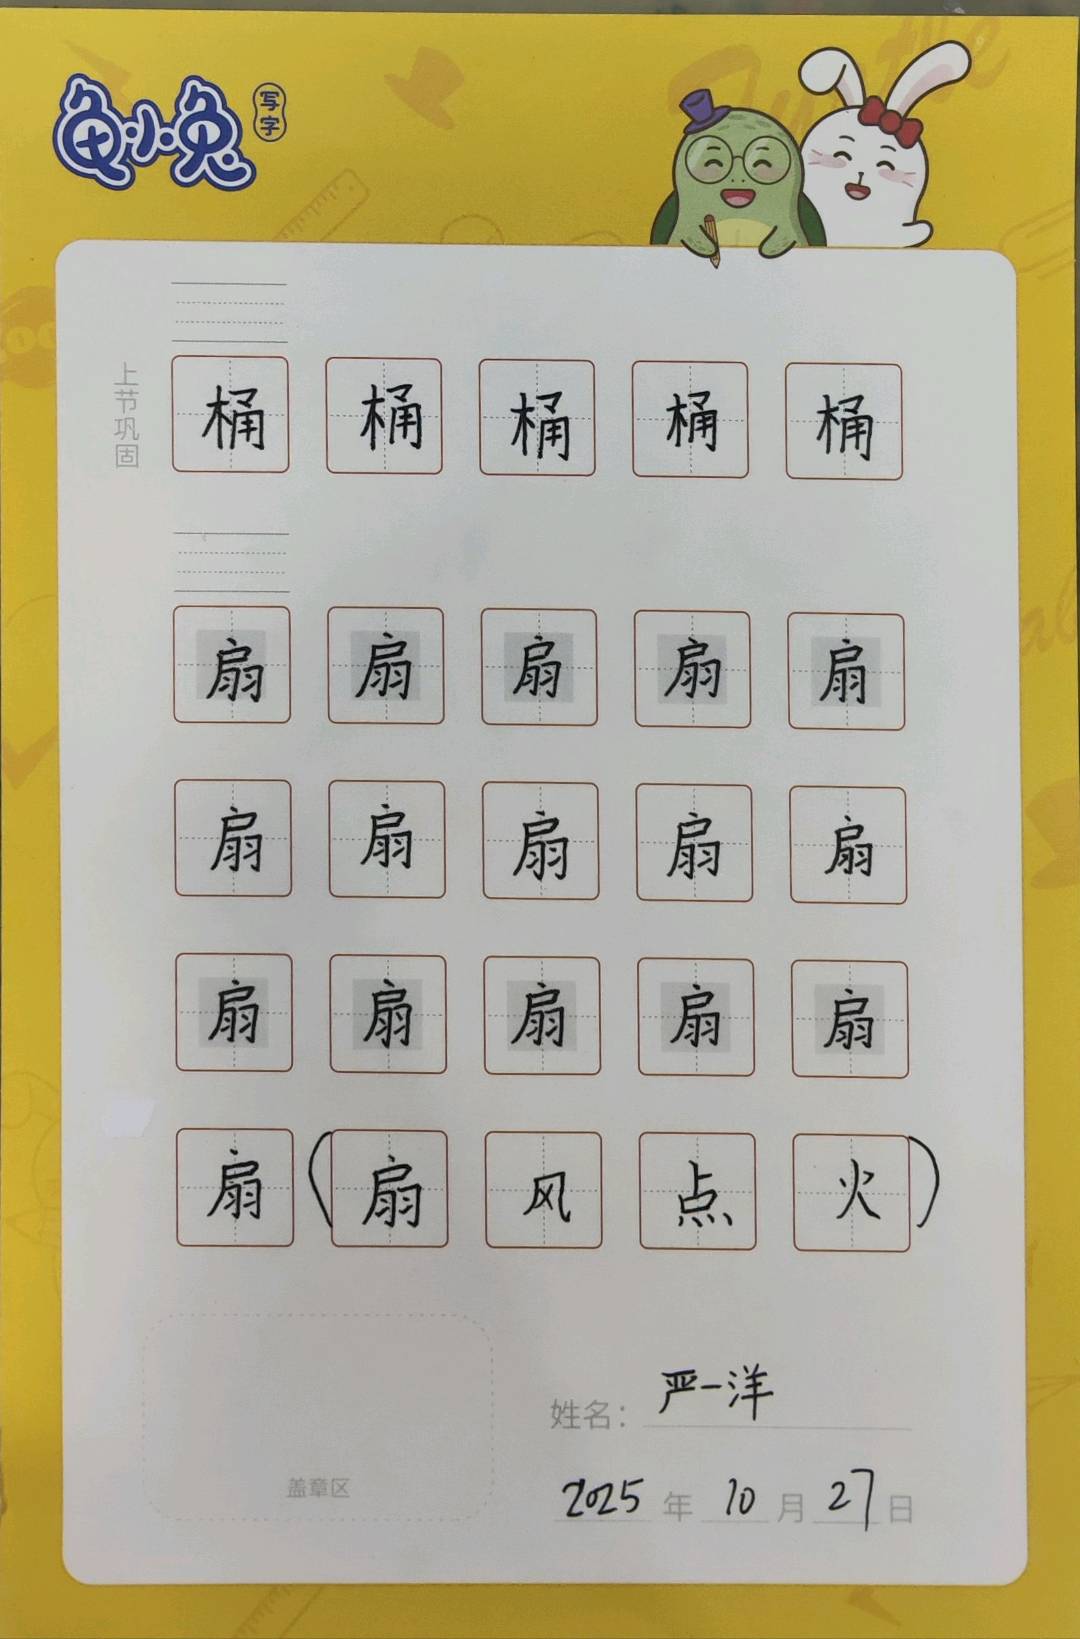 龟小兔 写字
上节巩固
桶 桶 桶 桶 桶
扇 扇 扇 扇 扇
扇 扇 扇 扇 扇
扇 扇 扇 扇 扇
扇 (扇 风 点 火)
姓名: 严一洋
盖章区
2025 年 10 月 27 日